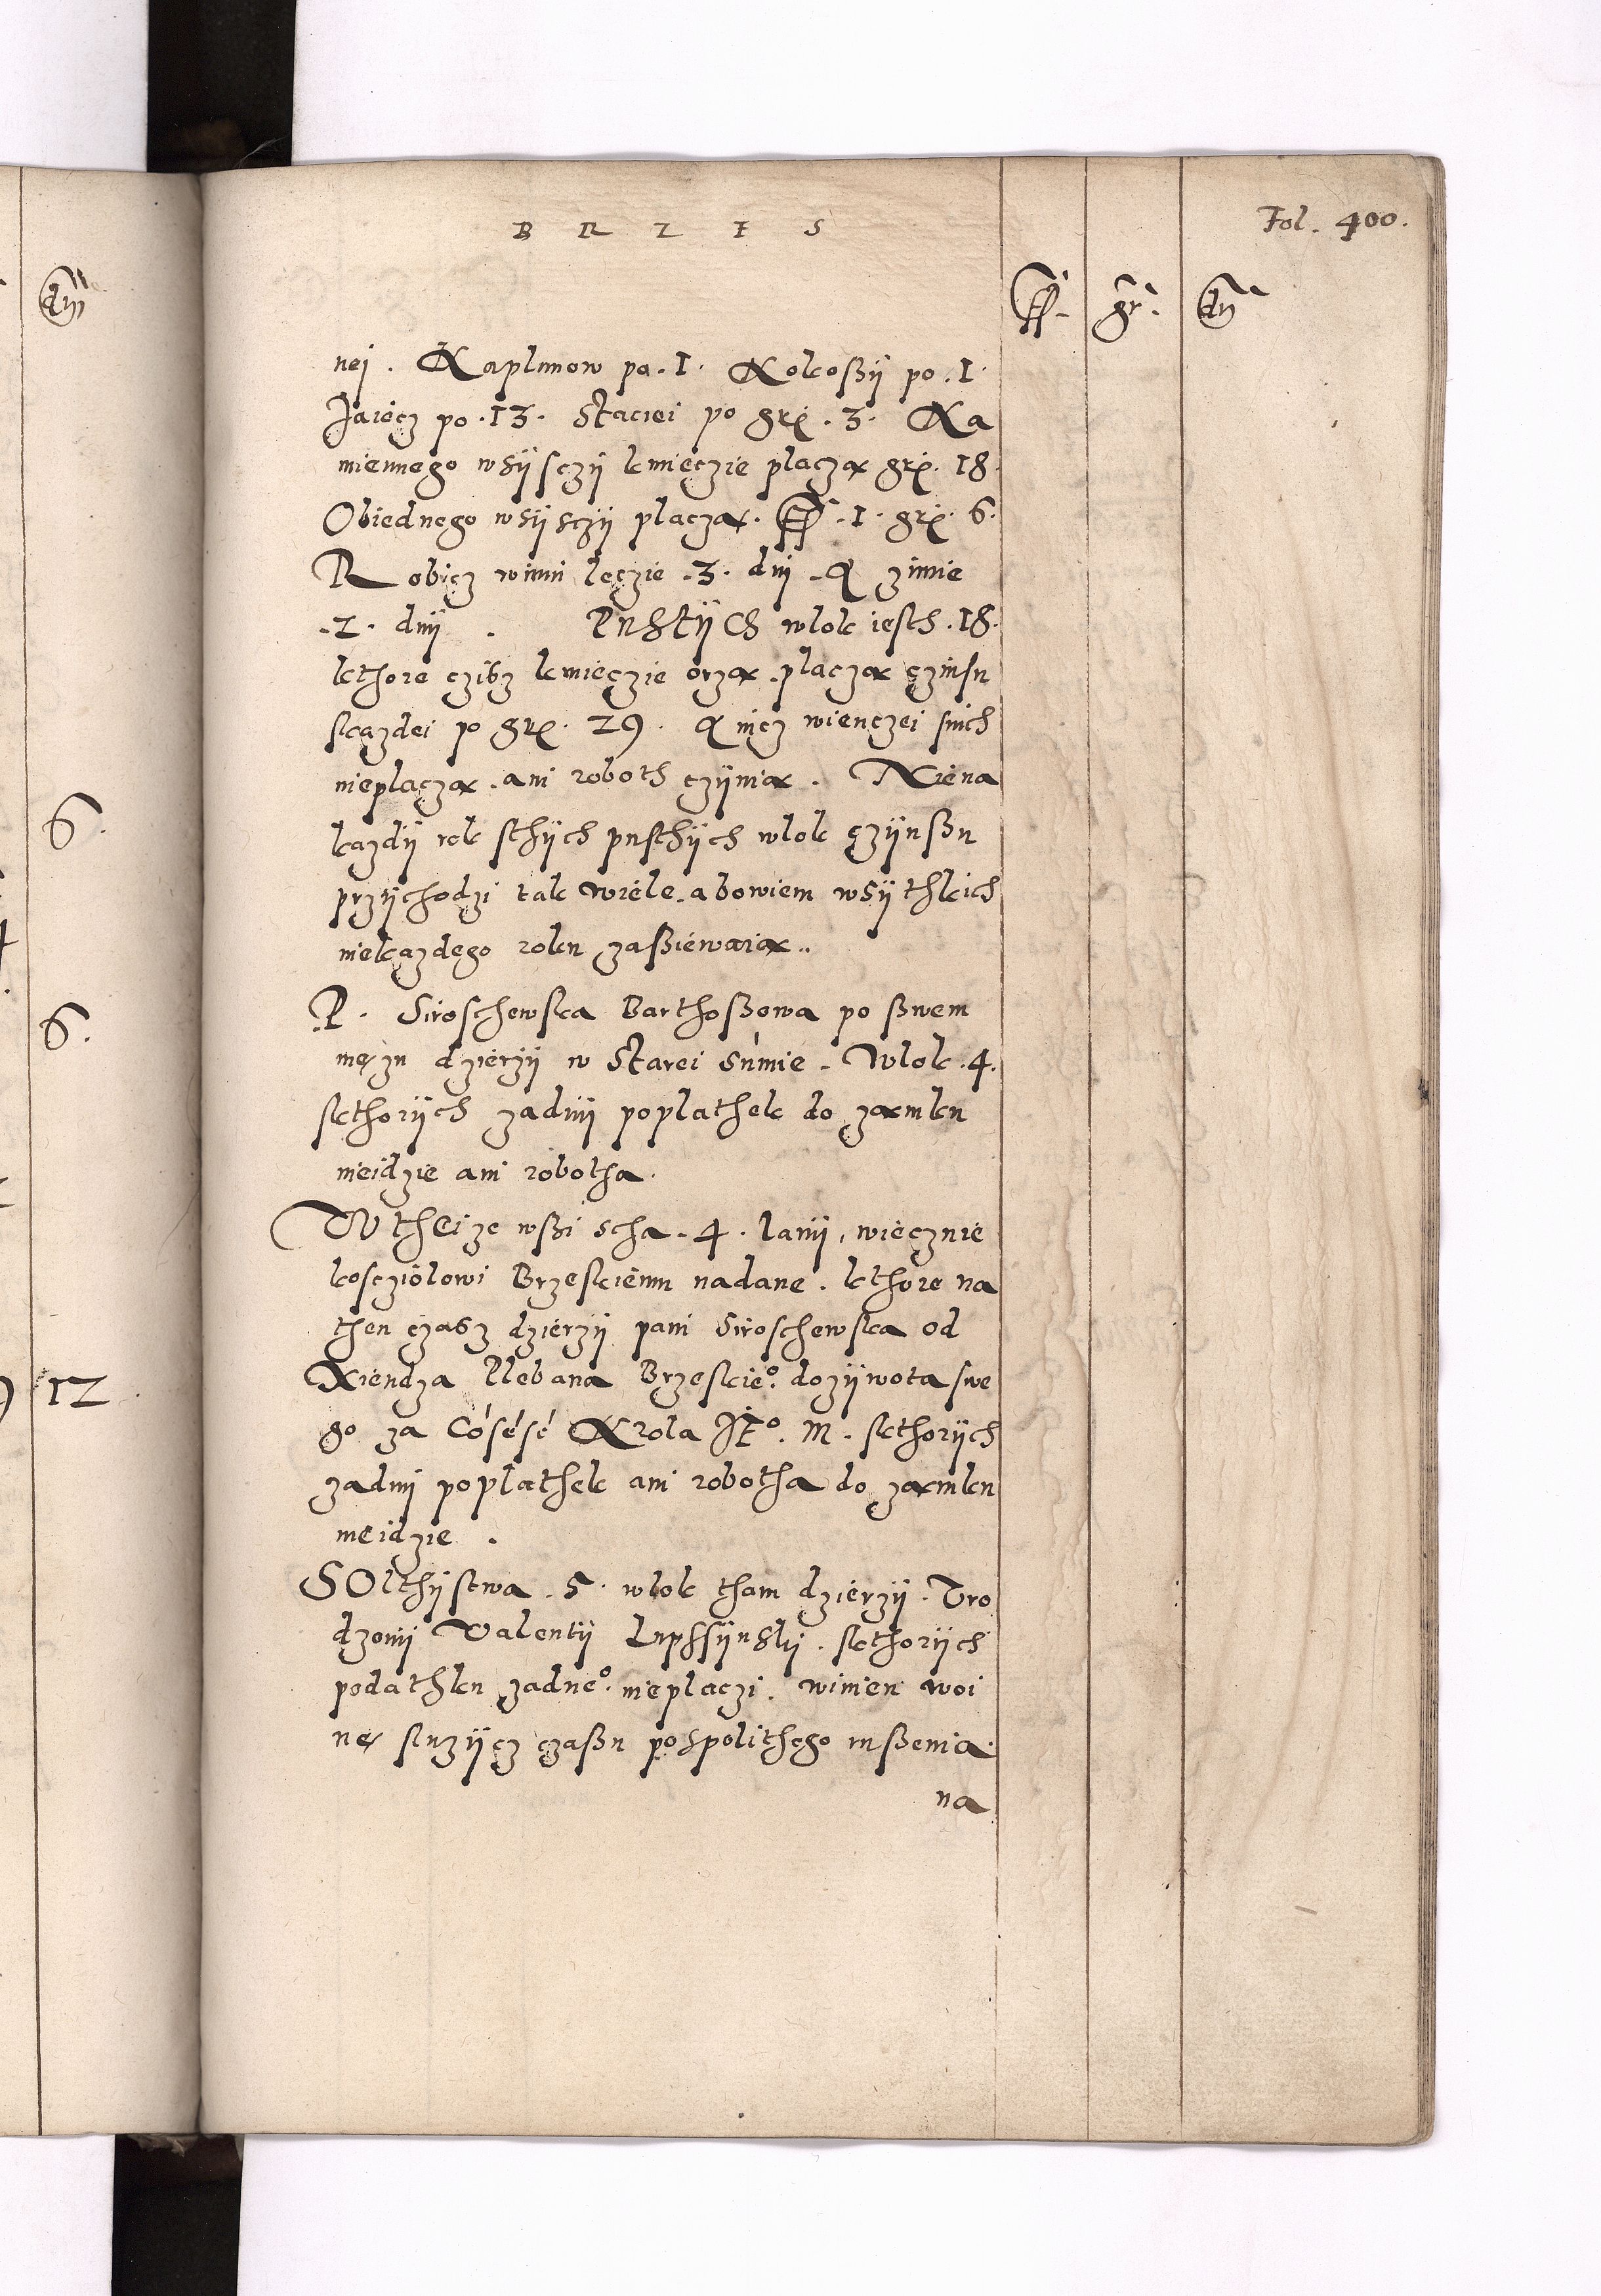 B R Z E S
Fol. 400.
ff. gr. dn
nej. Kaplunow po .1. Kokoßÿ po .1.
Jaiecz po .13. Staciei po grß. 3. Ka
miennego wsÿsczÿ kmieczie placzą grß. 18.
Obiednego wsÿsczÿ placzą. ff .1. grß. 6.
Robicz winni leczie .3. dni. A zimie
.2. dnÿ. PustÿCh wlok iesth .18.
kthore czisz kmieczie orzą. placzą czinsu
skazdei po grß. 29. A nicz wienczei snich
nieplaczą. ani roboth czÿnią. Niena
kazdÿ rok sthÿch pusthÿch wlok czÿnßu
przÿchodzi tak wiele. abowiem wsÿthkich
niekazdego roku zaßiewaią..
P. Siroschewska Barthoßowa po ßwem
mężu dzierzÿ w Starei Sumie. Wlok .4.
skthorÿch zadnÿ poplathek do zamku
nieidzie ani robotha.
W theize wßi scha .4. lanÿ, wiecznie
kosciolowi Brzeskiemu nadane. kthore na
then czasz dzierzÿ pani Siroschewska od
Xiendza Plebana Brzeskieo. dozÿwota swe
go za Cósésé Krola Jeo. M. skthorÿch
zadni poplathek ani robotha do zamku
nieidzie.
SOlthÿstwa .5. wlok tham dzierzÿ. Uro
dzonÿ Valentÿ Lupssÿnskÿ. skthorÿch
podathku zadneo. nieplaczi. winien woi
nę sluzÿcz czaßu pospolithego rußenia.
na
6.
6.
12.
dnÿ